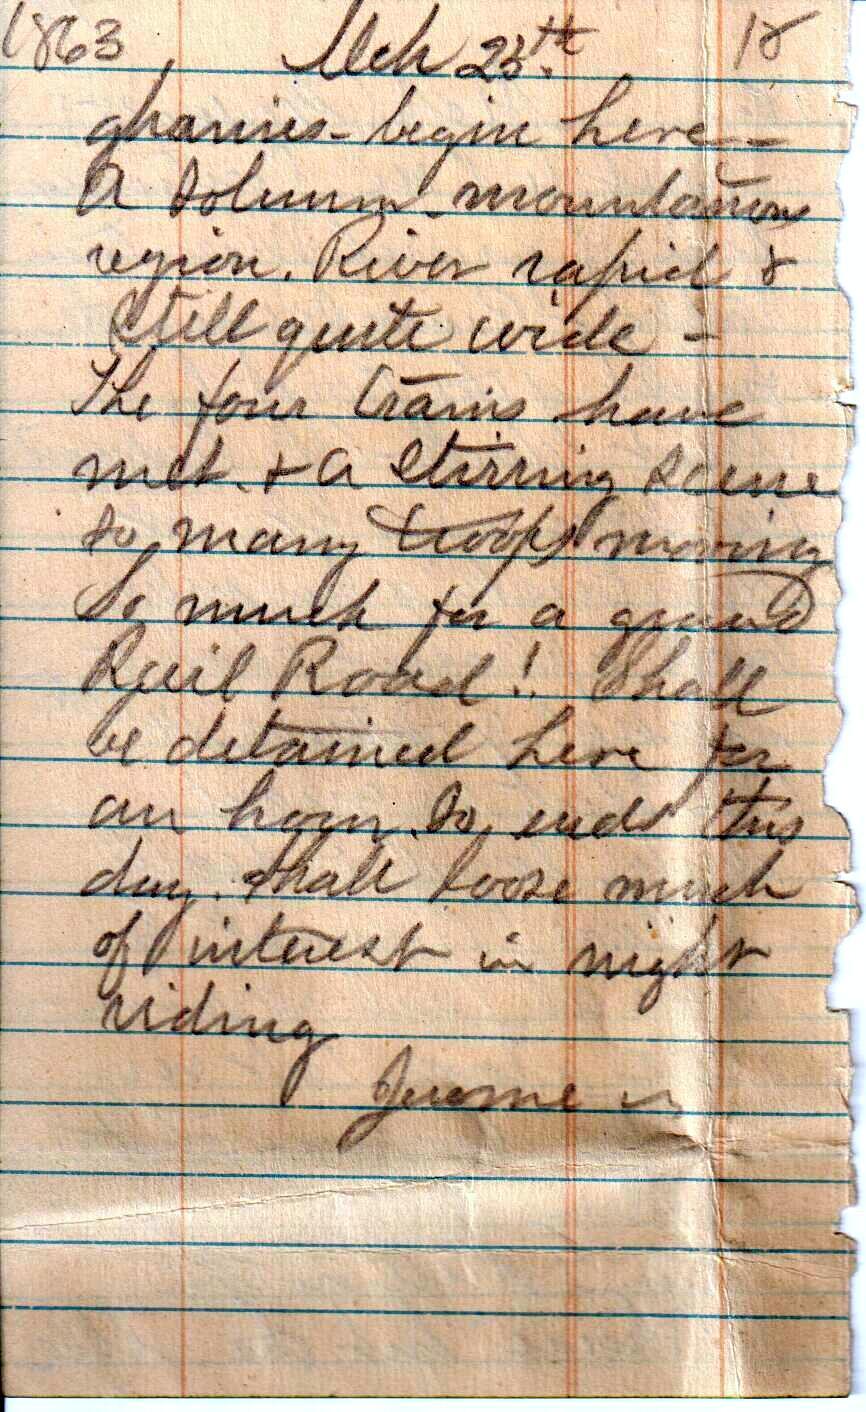 1863 Mch 23th 18
ghanies - begin here -
A Solumn mountainous
region. River rapid &
still quite wide -
The four trains have
met. & a stirring scene
so many troops moving
So much for a grand
Rail Road! Shall
be detained here for
an hour. So ends this
day. Shall loose much
of interest in night
riding
Jerome